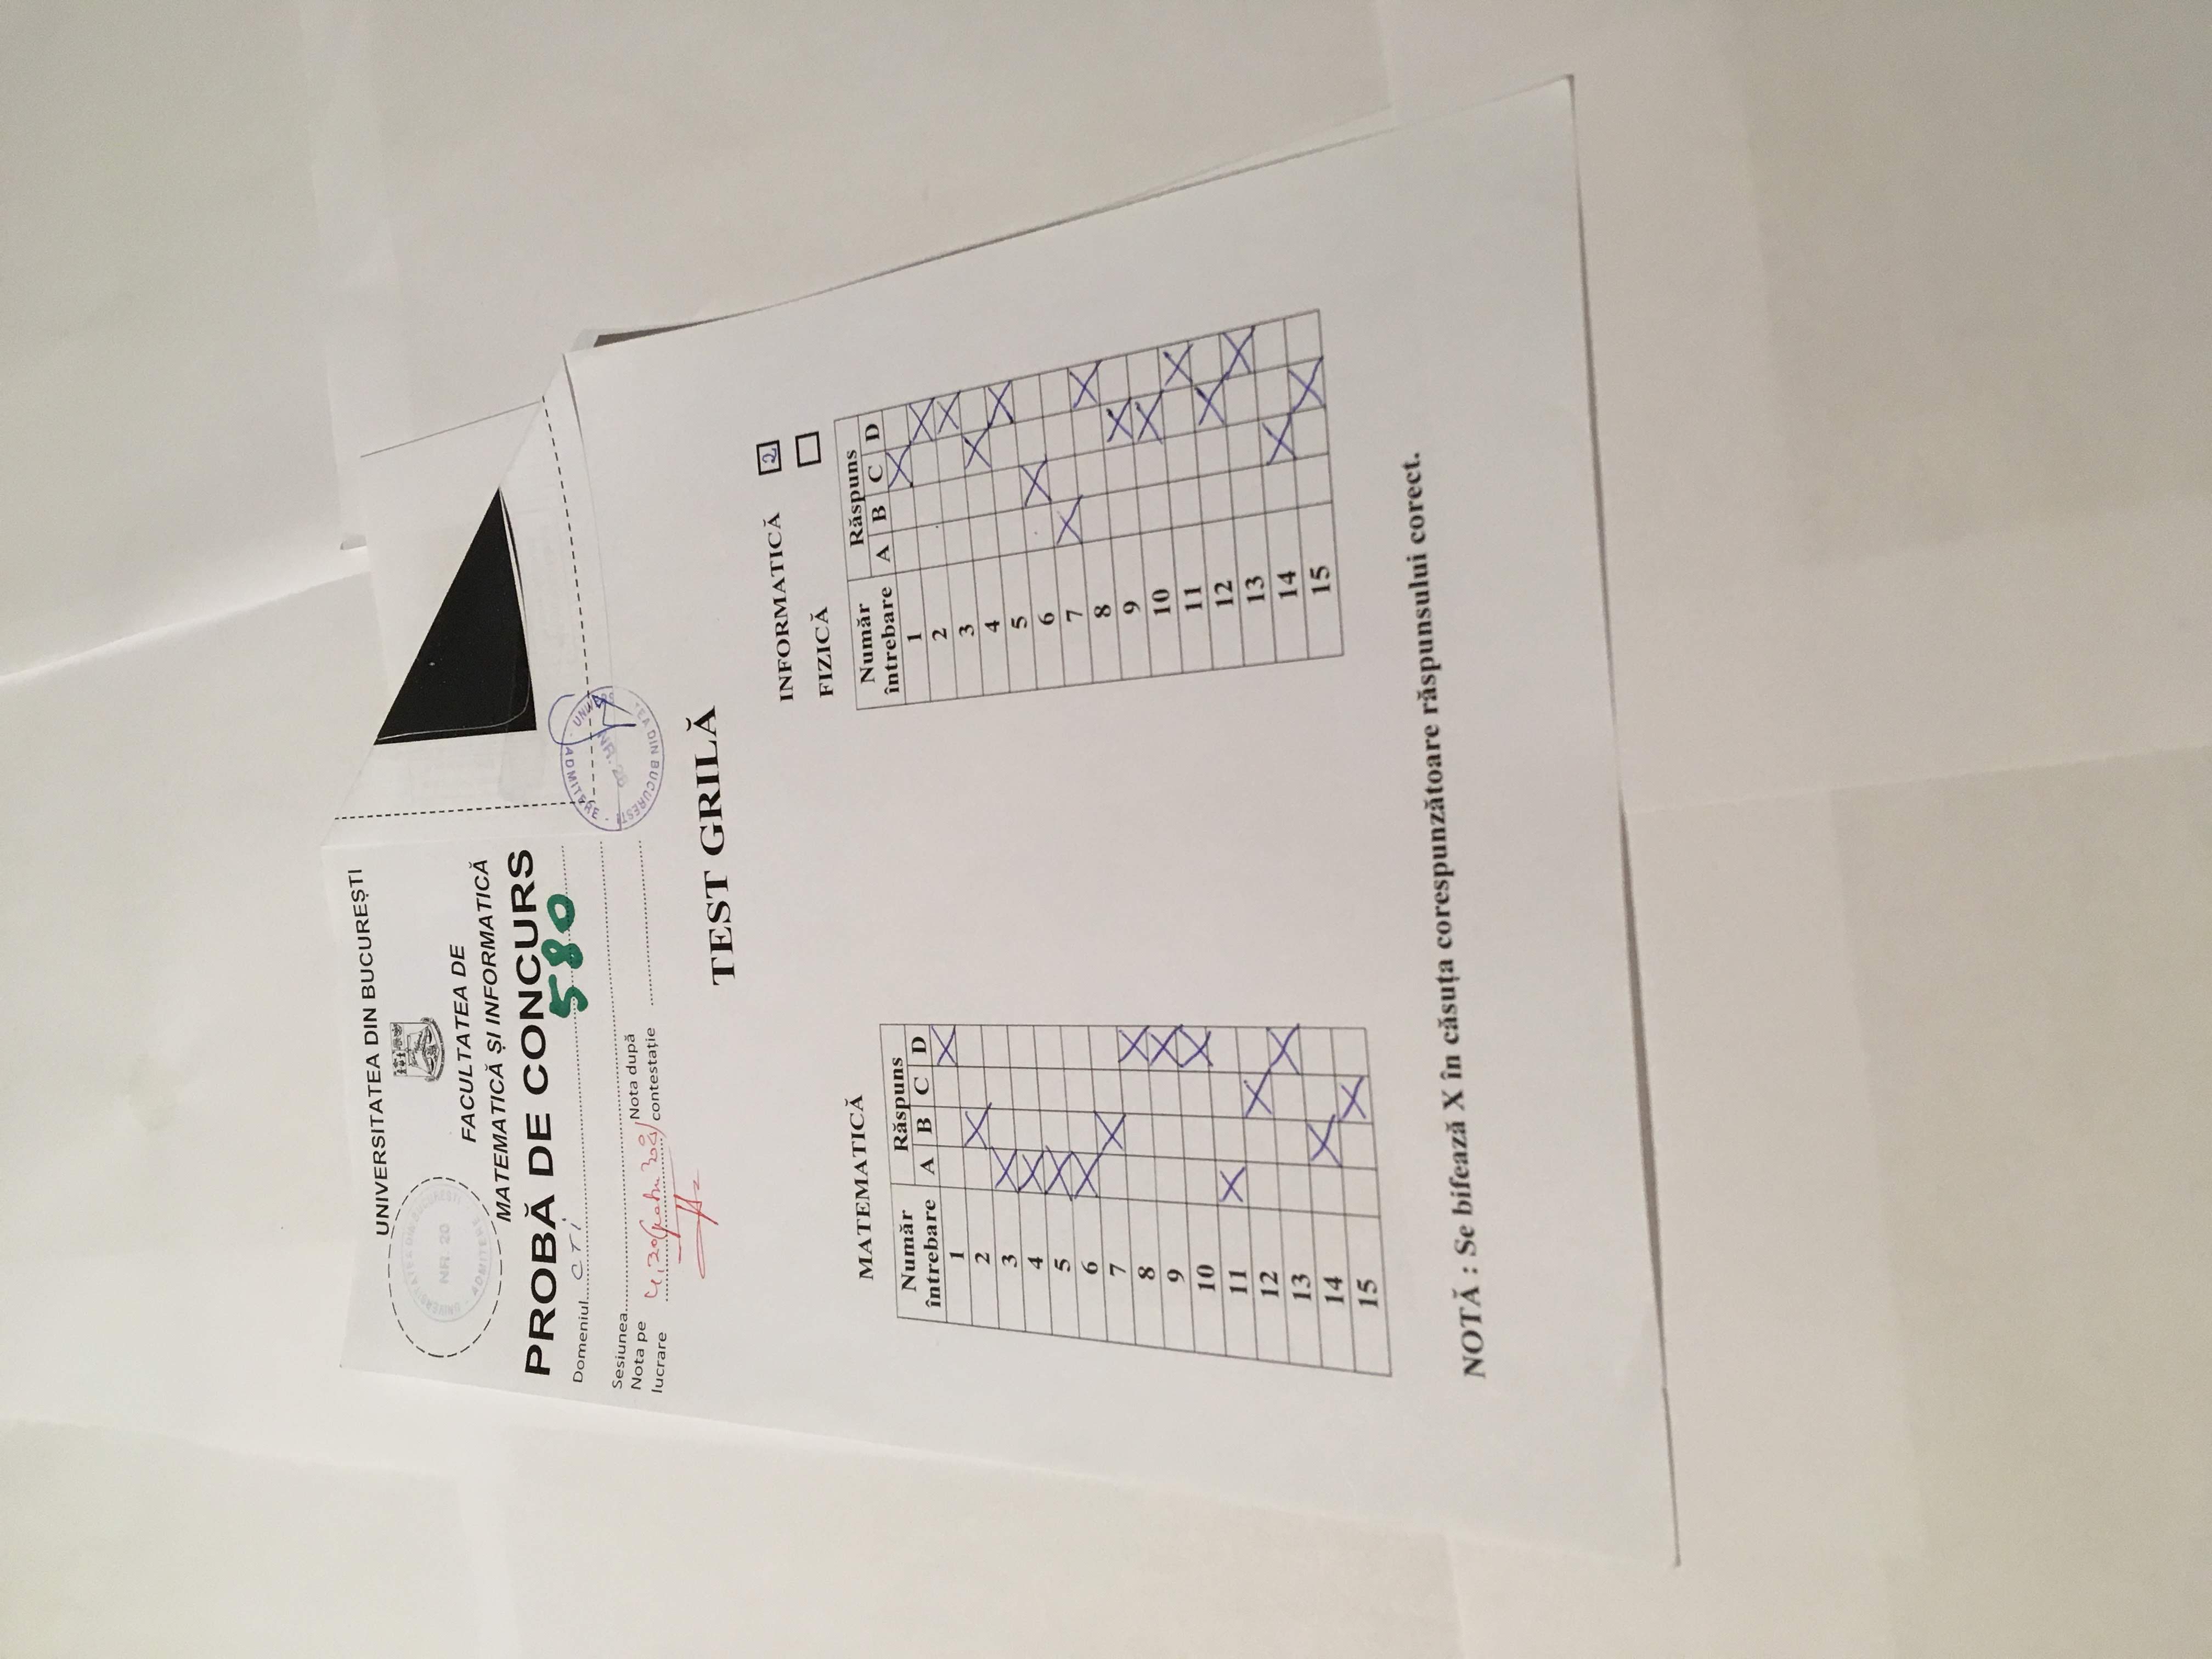 UNIVERSITATEA DIN BUCUREȘTI
UNIVERSITATEA DIN BUCURESTI
NR. 20
ADMITERE
FACULTATEA DE
MATEMATICĂ ȘI INFORMATICĂ
PROBĂ DE CONCURS
580
Domeniul CTi
Sesiunea
Nota pe lucrare 4,20 (patru 20%)
Nota după contestație
ADMITERE
NR. 20
TEA DIN BUCURESTI
TEST GRILĂ
INFORMATICĂ 2
FIZICĂ
MATEMATICĂ
Număr întrebare Răspuns
A B C D
1 X
2 X
3 X
4 X
5 X
6 X
7 X
8 X
9 X
10 X
11 X
12 X
13 X
14 X
15 X
Număr întrebare Răspuns
A B C D
1 X
2 X
3 X
4 X
5 X
6 X
7 X
8 X
9 X
10 X
11 X
12 X
13 X
14 X
15 X
NOTĂ : Se bifează X în căsuța corespunzătoare răspunsului corect.